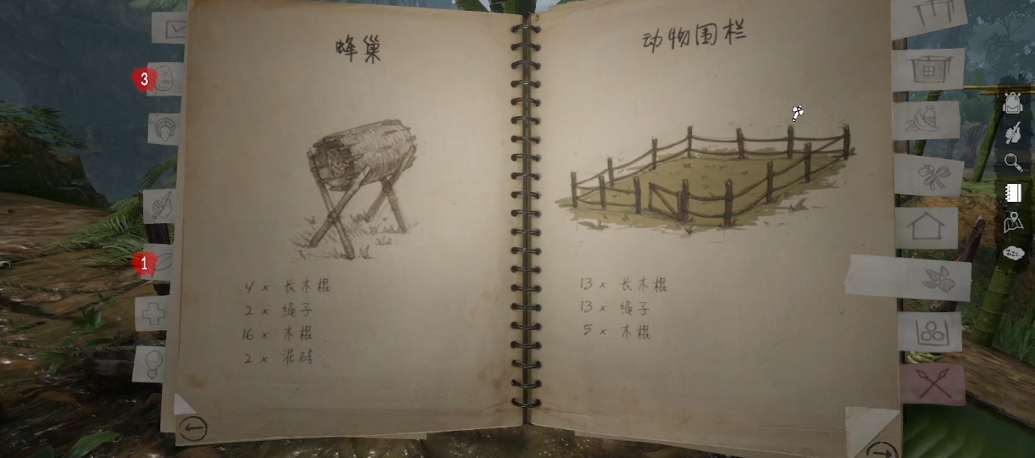 蜂巢
4 x 长木棍
2 x 绳子
16 x 木棍
2 x 泥砖
动物围栏
13 x 长木棍
13 x 绳子
5 x 木棍
3
1